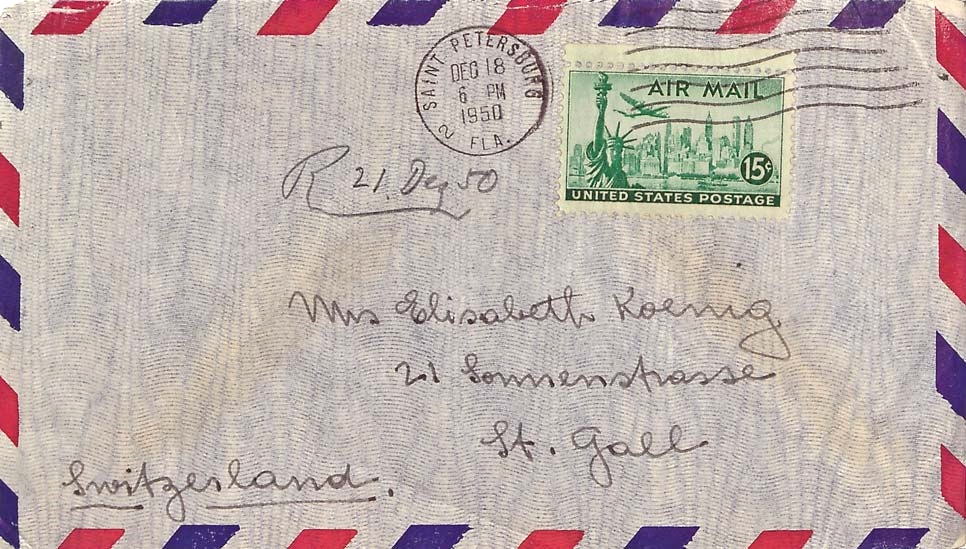 SAINT PETERSBURG
DEC 18
6 PM
1950
2 FLA.
AIR MAIL
15¢
UNITED STATES POSTAGE
R 21. Dez 50
Mrs Elisabeth Koenig
21 Sonnenstrasse
St. Gall
Switzerland.